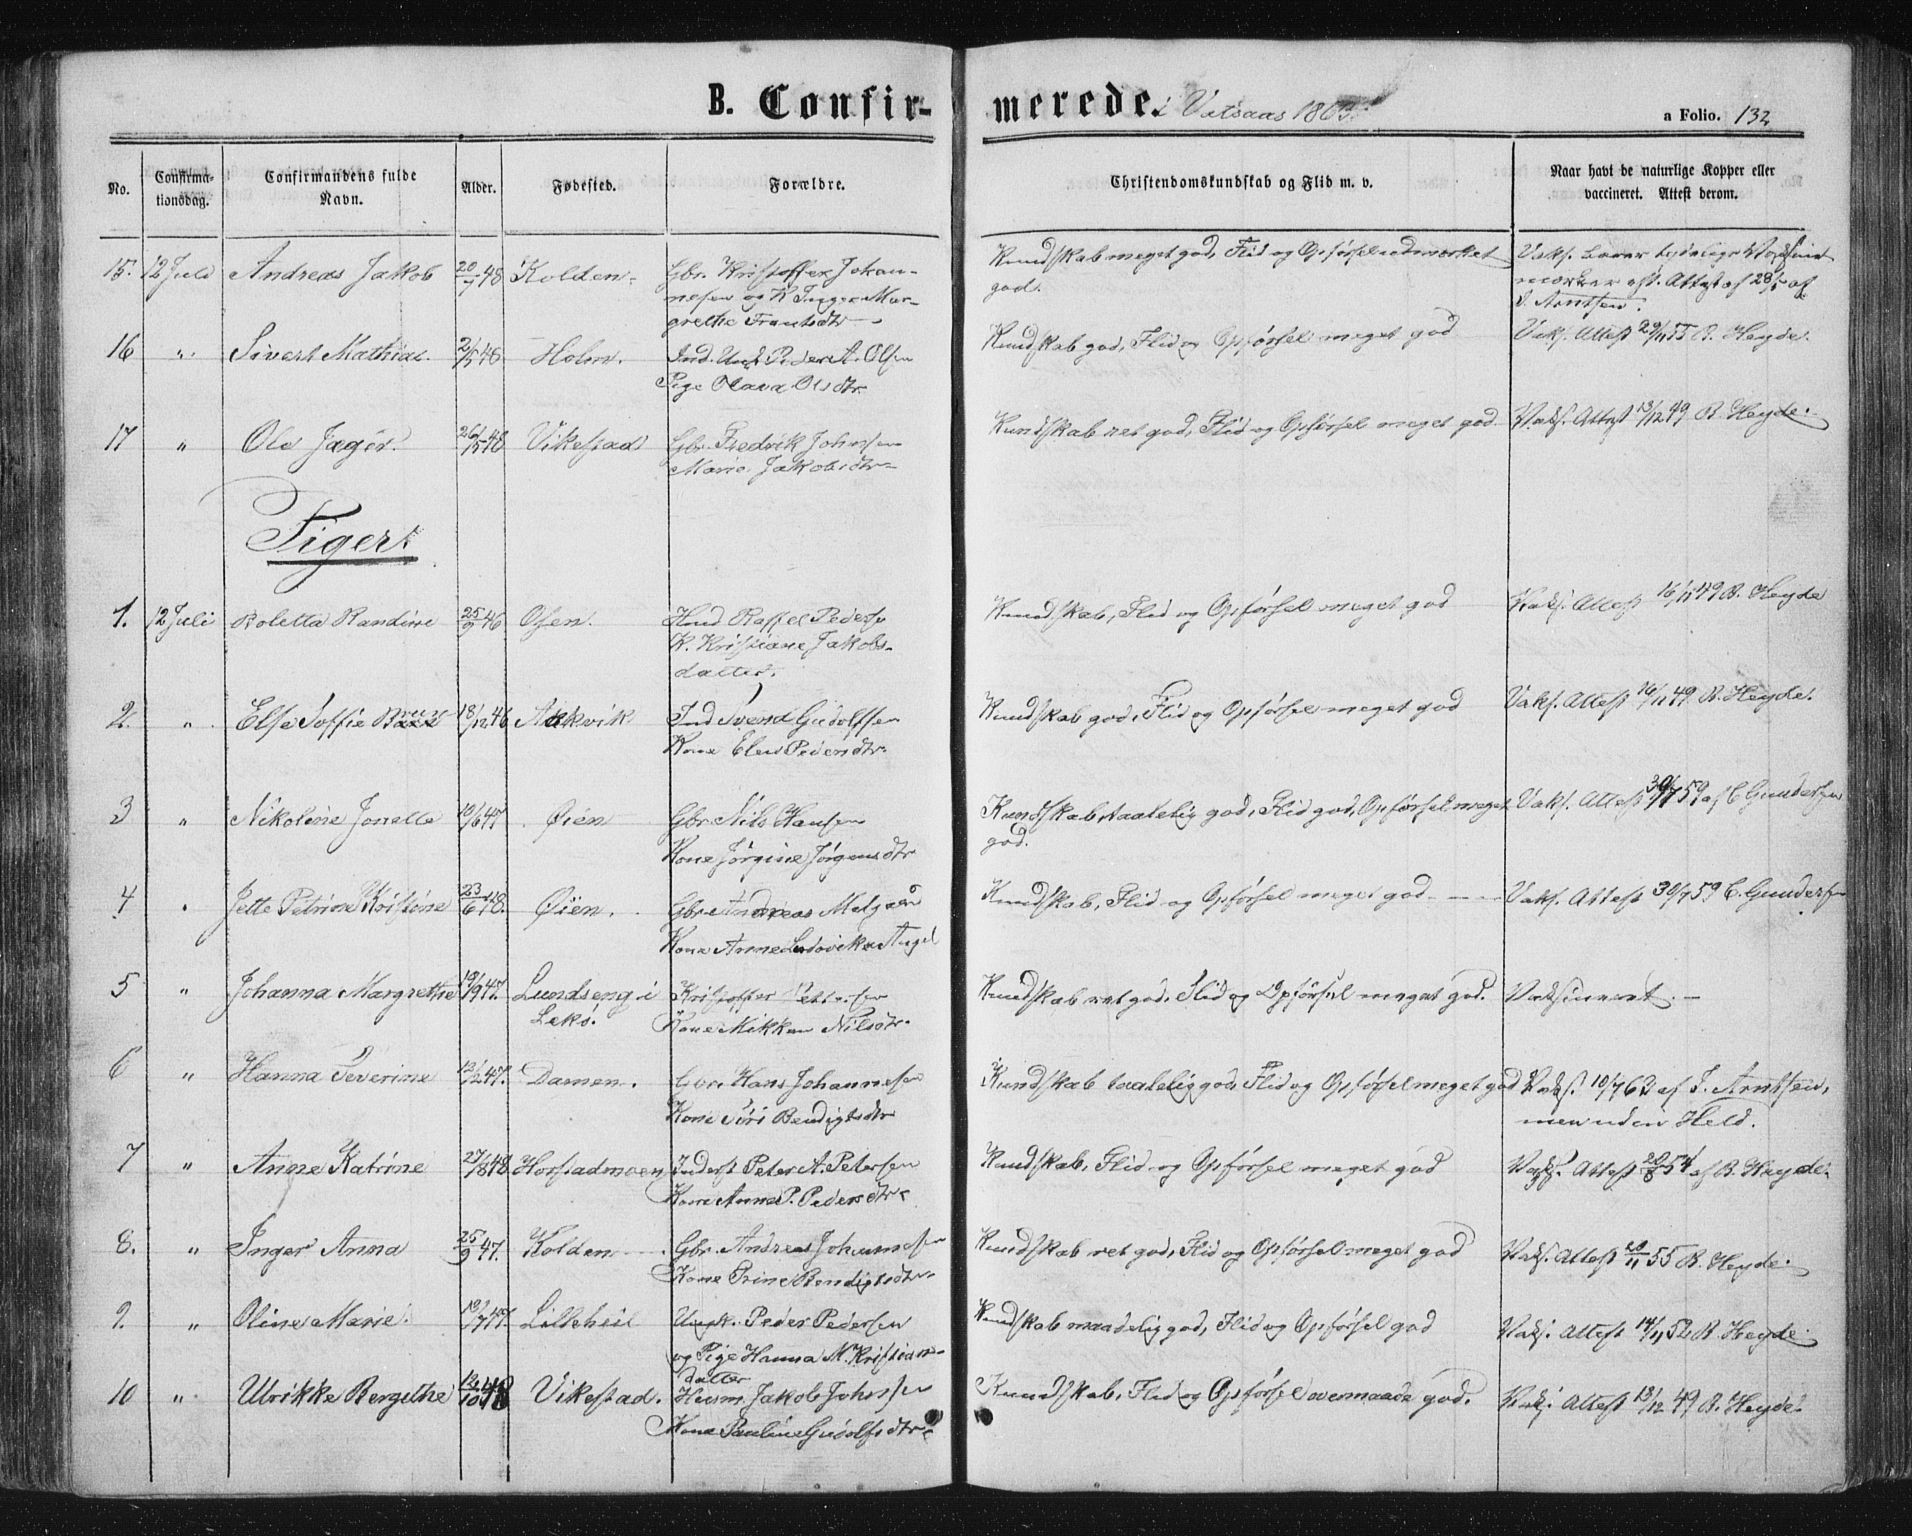 B. Confirmerede. i Vatsaas 1863.
a Folio. 132
No. Confirmationsdag. Confirmandens fulde Navn. Alder. Fødested. Forældre. Christendomskundskab og Flid m. v. Naar havt de naturlige Kopper eller vaccineret. Attest derom.
15. 12 Juli Andreas Jakob 20/7 48 Kolden Gbr. Kristoffer Johan- Kundskab meget god, Flid og Opførsel udmærket Vaks.
nesen og K. Inger Mar- god. mærker Attest af 28/5 af
grethe Frantsdtr J. Arntsen.
16 " Sivert Mathias 2/5 48 Holm. Ind. Ungk. Peder A. Olsen Kundskab god, Flid og Opførsel meget god Vaks. Attest 29/11 55 B. Heyde.
Pige Olava Olsdtr.
17 " Ole Jager 26/5 48 Vikestad Gbr. Fredrik Johnsen Kundskab ret god, Flid og Opførsel meget god Vaks. Attest 13/12 49 B. Heyde.
Marie Jakobsdtr
Piger.
1. 12 Juli Boletta Randine 25/9 46 Osen. Raffel Peders. Kundskab, Flid og Opførsel meget god Vaks. Attest 16/11 49 B. Heyde
K. Kristiane Jakobs-
datter.
2. " Else Soffie 18/12 46 Aakvik Ind Svend Gudolfsen Kundskab god, Flid og Opførsel meget god Vaks. Attest 16/11 49 B. Heyde.
Kone Elen Pedersdtr.
3 " Nikoline Jonette 10/6 47 Øien Gbr. Nils Hansen Kundskab taalelig god, Flid god, Opførsel meget Vaks. Attest 30/7 59 af C. Gundersen
Kone Jørgine Jørgensdtr god.
4 " Jette Petrine Kristine 23/6 48. Øien. Gbr. Andreas Melgaar Kundskab, Flid og Opførsel meget god Vaks. Attest 30/7 59 C. Gundersen
Kone Anne Ludovika Angel
5 " Johanna Margrethe 19/9 47. Lundseng i Kristoffer Kundskab ret god, Flid og Opførsel meget god. Vaksineret.
Lekø. Kone Mikken Nilsdtr.
6 " Hanna Severine 12/2 47. Damen. Gbr. Hans Johannesen Kundskab taalelig god, Flid og Opførsel meget god Vaks. 10/7 63 af J. Arntsen,
Kone Siri Bendigtsdtr men uden Held.
7 " Anne Katrine 27/8 48 Horstadmoen Inderst Peter A. Petersen Kundskab, Flid og Opførsel meget god Vaks. Attest 54 af B. Heyde.
Kone Anne P. Pedersdtr
8. " Inger Anna 25/9 47. Kolden Gbr. Andreas Johannesen Kundskab ret god, Flid og Opførsel meget god Vaks. Attest 55 B. Heyde.
Kone Trine Bendigtsdtr
9. " Oline Marie 13/7 47. Lilleheil Ungk. Peder Pedersen Kundskab maadelig god, Flid og Opførsel god Vaks. Attest 14/11 52 B. Heyde.
og Pige Hanna M. Kristian-
datter
10 " Ulrikke Bergithe 12/10 48 Vikestad. Husm. Jakob Johnsen Kundskab, Flid og Opførsel overmaade god. Vaks. Attest 13/12 49 B. Heyde.
Kone Pauline Gudolfsdtr.